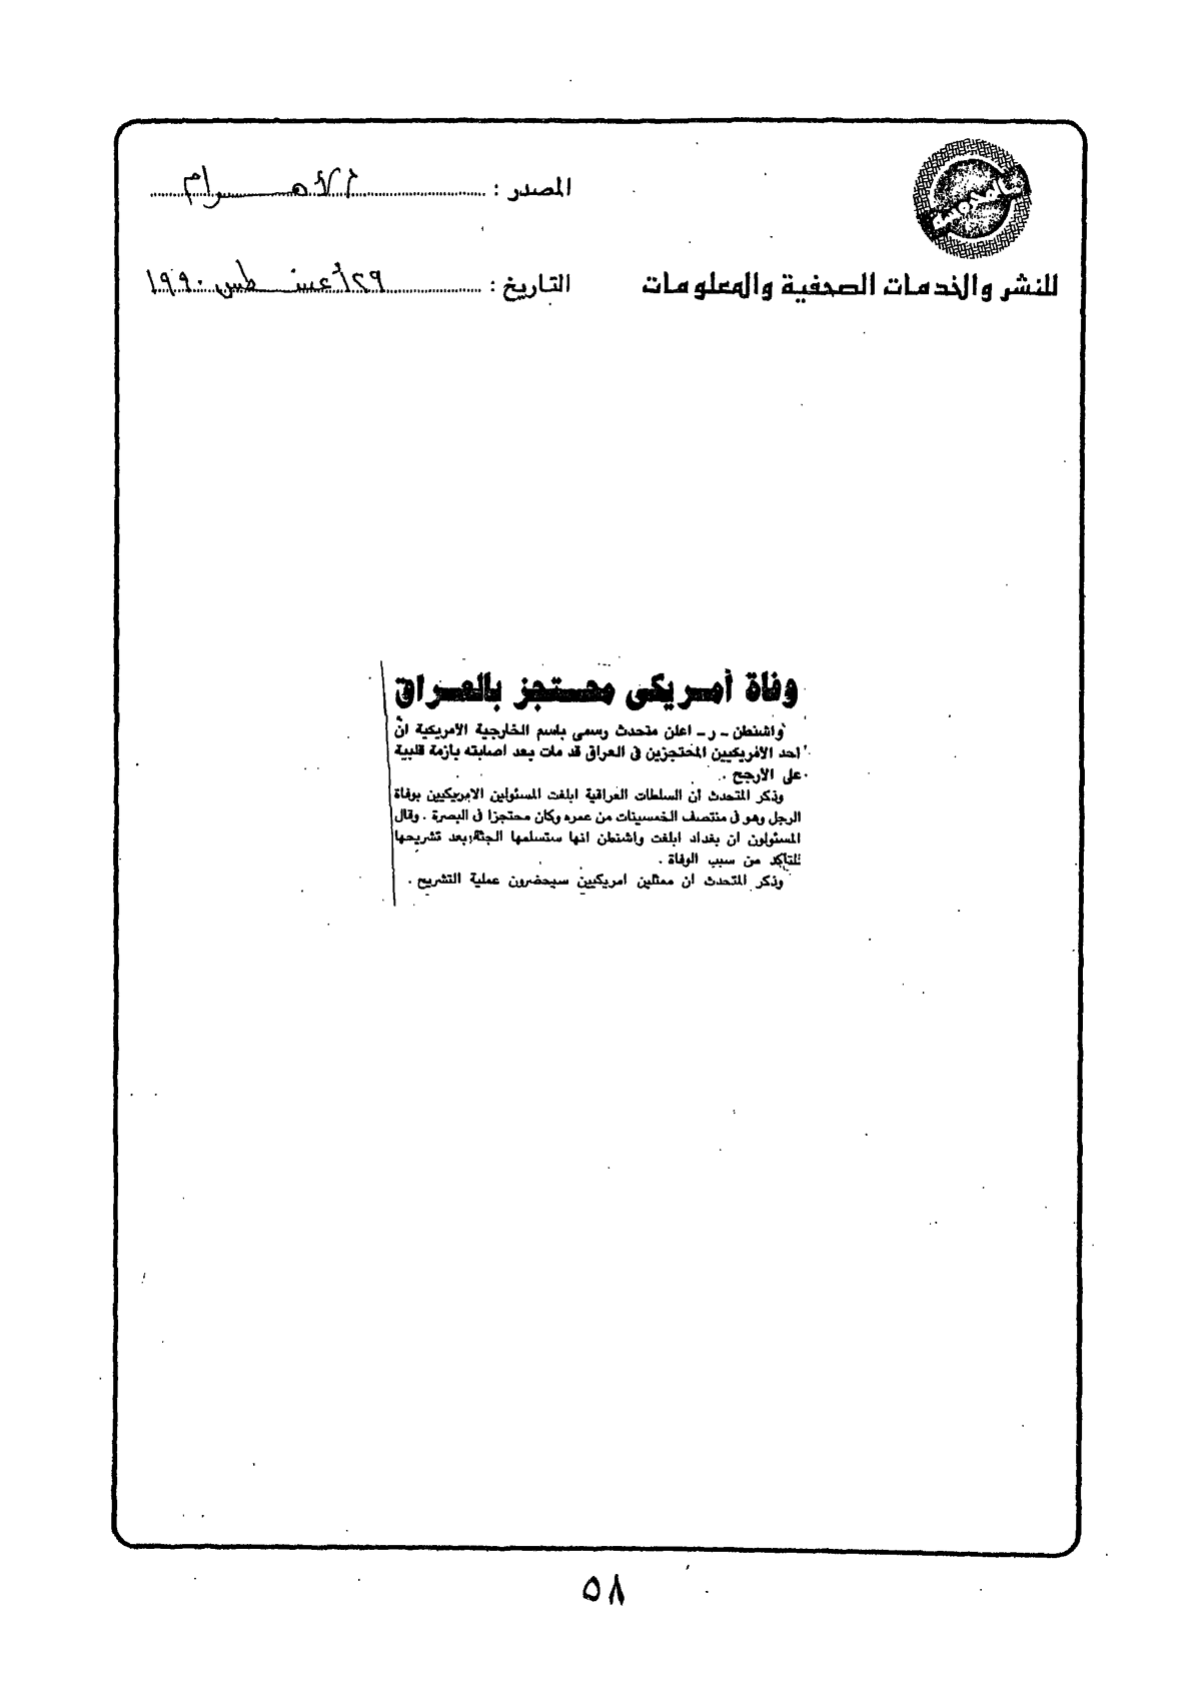 المصدر : الأهـــرام
للنشر والخدمات الصحفية والمعلومات
التاريخ : ٢٩ أغسـطس ١٩٩٠
وفاة أمريكى محتجز بالعراق
واشنطن - ر - اعلن متحدث رسمى باسم الخارجية الأمريكية ان
احد الأمريكيين المحتجزين فى العراق قد مات بعد اصابته بازمة قلبية
على الارجح .
وذكر المتحدث ان السلطات العراقية ابلغت المسئولين الامريكيين بوفاة
الرجل وهو فى منتصف الخمسينات من عمره وكان محتجزا فى البصرة . وقال
المسئولون ان بغداد ابلغت واشنطن انها ستسلمها الجثة بعد تشريحها
للتاكد من سبب الوفاة .
وذكر المتحدث ان ممثلين امريكيين سيحضرون عملية التشريح .
٥٨